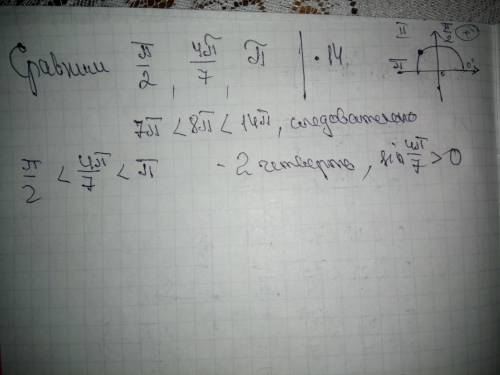 Сравним π/2, 4π/7, π | · 14
7π < 8π < 14π, следовательно
π/2 < 4π/7 < π - 2 четверть, sin 4π/7 > 0
II π/2 +
π 0